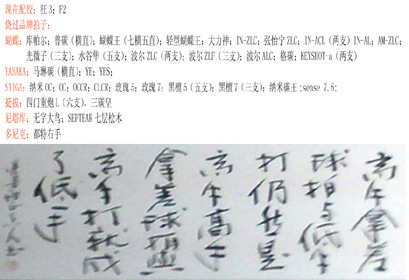 现在配绞：狂3；F2
烧过品牌拍子：
蝴蝶：库帕尔；普碳（横直）；蝴蝶王（七横五直）；轻型蝴蝶王；大力神；IN-ZLC；张怡宁ZLC；IN-ACL（两支）IN-AL；AM-ZLC；
光微子（三支）；水谷隼（五支）；波尔ZLC（两支）波尔ZLF（三支）；波尔ALC；格碳；KEYSHOT-a（两支）
YASAKA：马琳碳（横直）；YE；YES；
STIGA：纳米OC；OC；OCCR；CLCR；玫瑰5；玫瑰7；黑檀5（五支）；黑檀7（三支）；纳米碳王；sense 7.6；
挺拔：四门重炮L（六支），三碳皇
尼塔库：无字大鸟；SEPTEAR七层桧木
多尼克：都特右手
高手拿差
球拍与低手
打仍然是
高手高手
拿差球拍
高手打就成
了低手